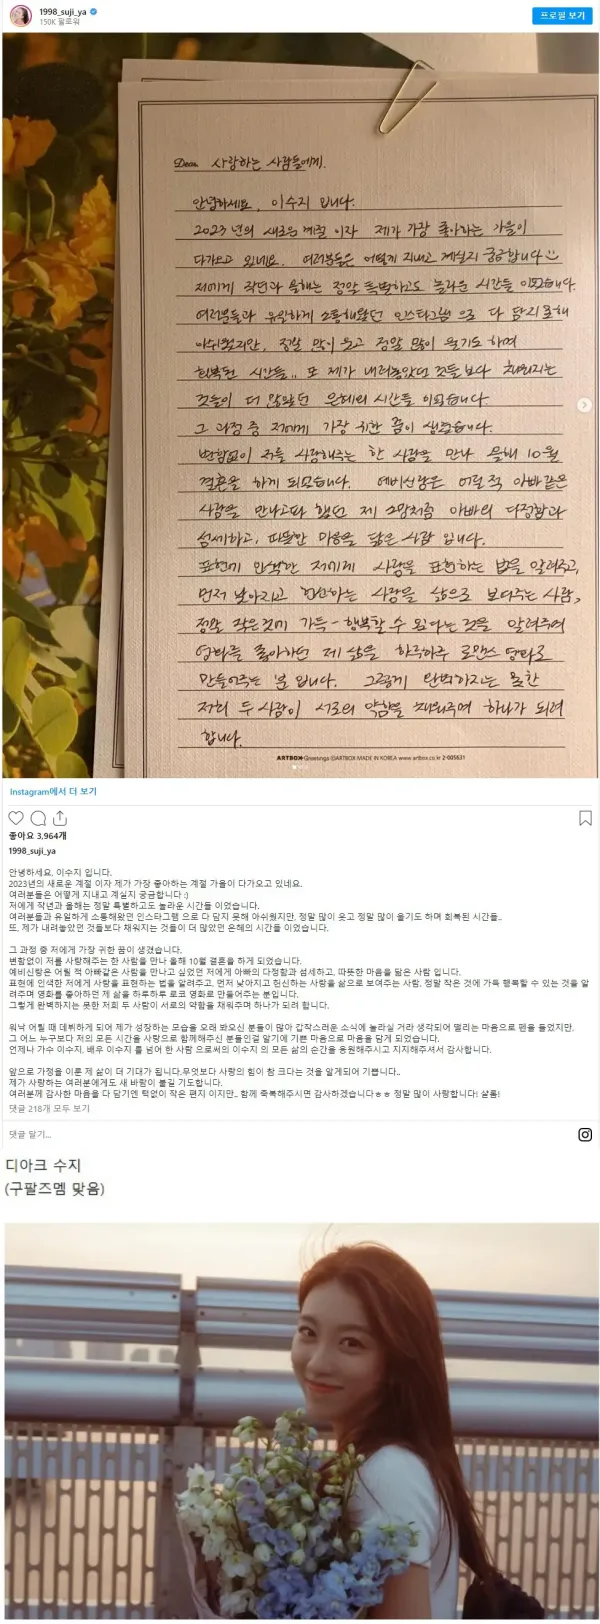 1998_suji_ya
150K 팔로워
프로필 보기
Dear. 사랑하는 사람들에게.
안녕하세요, 이수지 입니다.
2023년의 새로운 계절 이자 제가 가장 좋아하는 가을이
다가오고 있네요. 여러분들은 어떻게 지내고 계실지 궁금합니다
저에게 작년과 올해는 정말 특별하고도 놀라운 시간들 이었습니다.
여러분들과 유일하게 소통해왔던 인스타그램 으로 다 담지 못해
아쉬웠지만, 정말 많이 웃고 정말 많이 울기도 하며
회복된 시간들.. 또 제가 내려놓았던 것들보다 채워지는
것들이 더 많았던 은혜의 시간들 이었습니다.
그 과정 중 저에게 가장 귀한 꿈이 생겼습니다.
변함없이 저를 사랑해주는 한 사람을 만나 올해 10월
결혼을 하게 되었습니다. 예비신랑은 어릴 적 아빠같은
사람을 만나고파 했던 제 소망처럼 아빠의 다정함과
섬세하고, 따뜻한 마음을 닮은 사람 입니다.
표현에 인색한 저에게 사랑을 표현하는 법을 알려주고,
먼저 낮아지고 헌신하는 사랑을 삶으로 보여주는 사람,
정말 작은것에 가득 행복할 수 있다는 것을 알려주며
영화를 좋아하던 제 삶을 하루하루 로맨스 영화로
만들어주는 분 입니다. 그렇게 완벽하지는 못한
저희 두 사람이 서로의 약함을 채워주며 하나가 되려
합니다.
ARTBOX Greetings ⓒARTBOX MADE IN KOREA www.artbox.co.kr 2-005631
Instagram에서 더 보기
좋아요 3,964개
1998_suji_ya
안녕하세요. 이수지 입니다.
2023년의 새로운 계절 이자 제가 가장 좋아하는 계절 가을이 다가오고 있네요.
여러분들은 어떻게 지내고 계실지 궁금합니다 :)
저에게 작년과 올해는 정말 특별하고도 놀라운 시간들 이었습니다.
여러분들과 유일하게 소통해왔던 인스타그램 으로 다 담지 못해 아쉬웠지만, 정말 많이 웃고 정말 많이 울기도 하며 회복된 시간들..
또, 제가 내려놓았던 것들보다 채워지는 것들이 더 많았던 은혜의 시간들 이었습니다.
그 과정 중 저에게 가장 귀한 꿈이 생겼습니다.
변함없이 저를 사랑해주는 한 사람을 만나 올해 10월 결혼을 하게 되었습니다.
예비신랑은 어릴 적에 아빠같은 사람을 만나고 싶었던 저에게 아빠의 다정함과 섬세하고, 따뜻한 마음을 닮은 사람 입니다.
표현에 인색한 저에게 사랑을 표현하는 법을 알려주고, 먼저 낮아지고 헌신하는 사랑을 삶으로 보여주는 사람, 정말 작은 것에 가득 행복할 수 있는 것을 알
려주며 영화를 좋아하던 제 삶을 하루하루 로코 영화로 만들어주는 분입니다.
그렇게 완벽하지는 못한 저희 두 사람이 서로의 약함을 채워주며 하나가 되려 합니다.
워낙 어릴 때 데뷔하게 되어 제가 성장하는 모습을 오래 봐오신 분들이 많아 갑작스러운 소식에 놀라실 거라 생각되어 떨리는 마음으로 펜을 들었지만,
그 어느 누구보다 저의 모든 시간을 사랑으로 함께해주신 분들인걸 알기에 기쁜 마음으로 마음을 담게 되었습니다.
언제나 가수 이수지, 배우 이수지 를 넘어 한 사람 으로써의 이수지 의 모든 삶의 순간을 응원해주시고 지지해주셔서 감사합니다.
앞으로 가정을 이룬 제 삶이 더 기대가 됩니다.무엇보다 사랑의 힘이 참 크다는 것을 알게되어 기쁩니다..
제가 사랑하는 여러분에게도 새 바람이 불길 기도합니다.
여러분께 감사한 마음을 다 담기엔 턱없이 작은 편지 이지만.. 함께 축복해주시면 감사하겠습니다ㅎㅎ 정말 많이 사랑합니다! 샬롬!
댓글 218개 모두 보기
댓글 달기...
디아크 수지
(구팔즈멤 맞음)